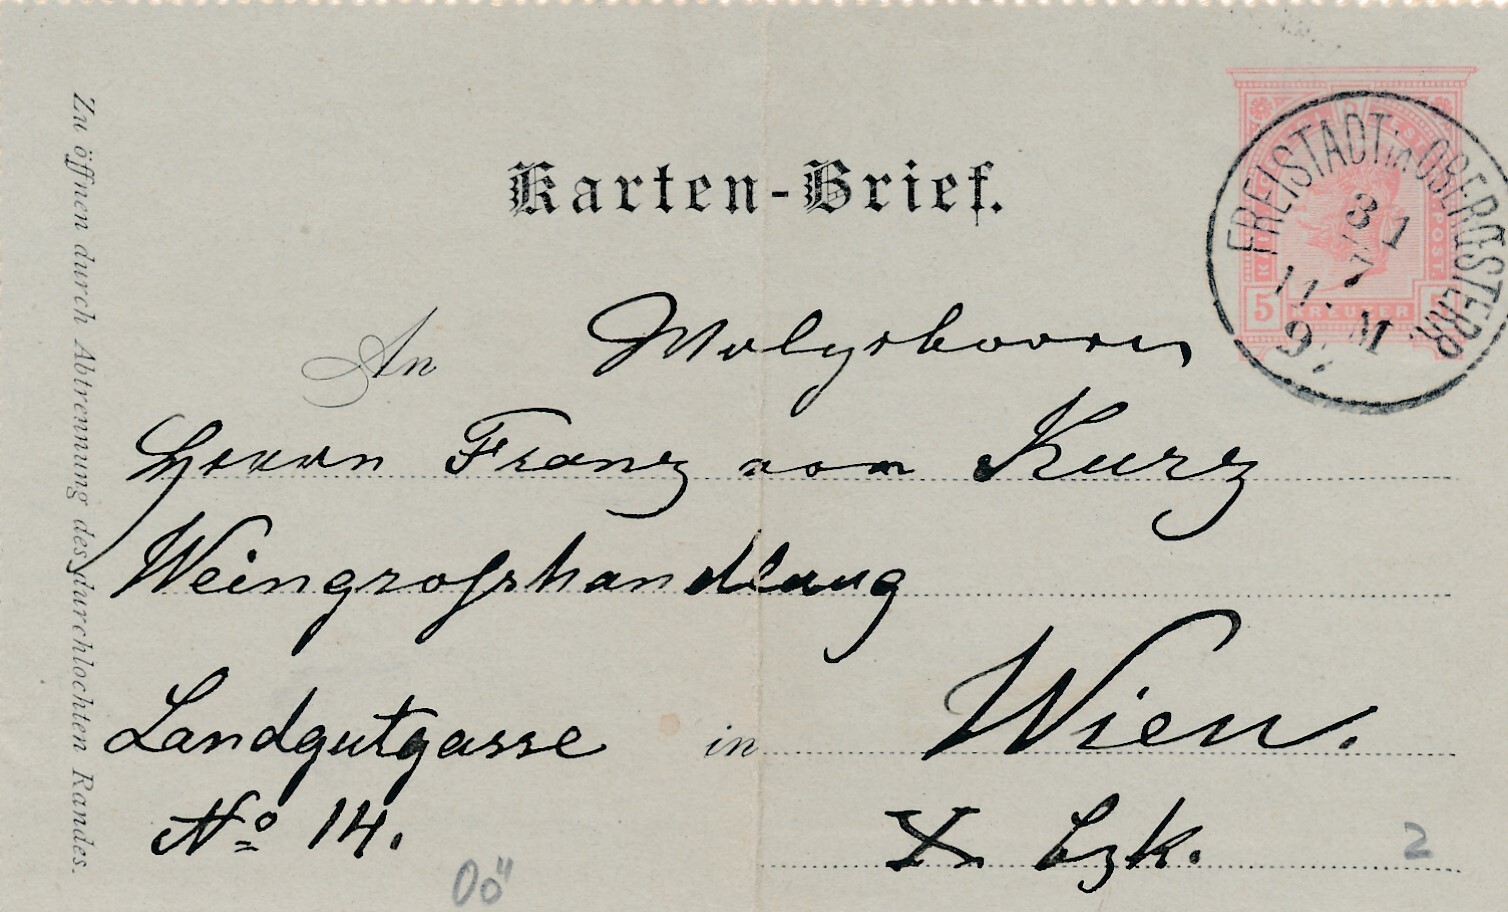 Karten-Brief.
An Wohlgeboren
Herrn Franz von Kurz
Weingroßhandlung
Landgutgasse in Wien.
No 14. X Bzk.
Zu öffnen durch Abtrennung des durchlochten Randes.
FREISTADT in OBERÖSTERR.
31
7
11. M
97
5 KREUZER 5
POST
OÖ
2